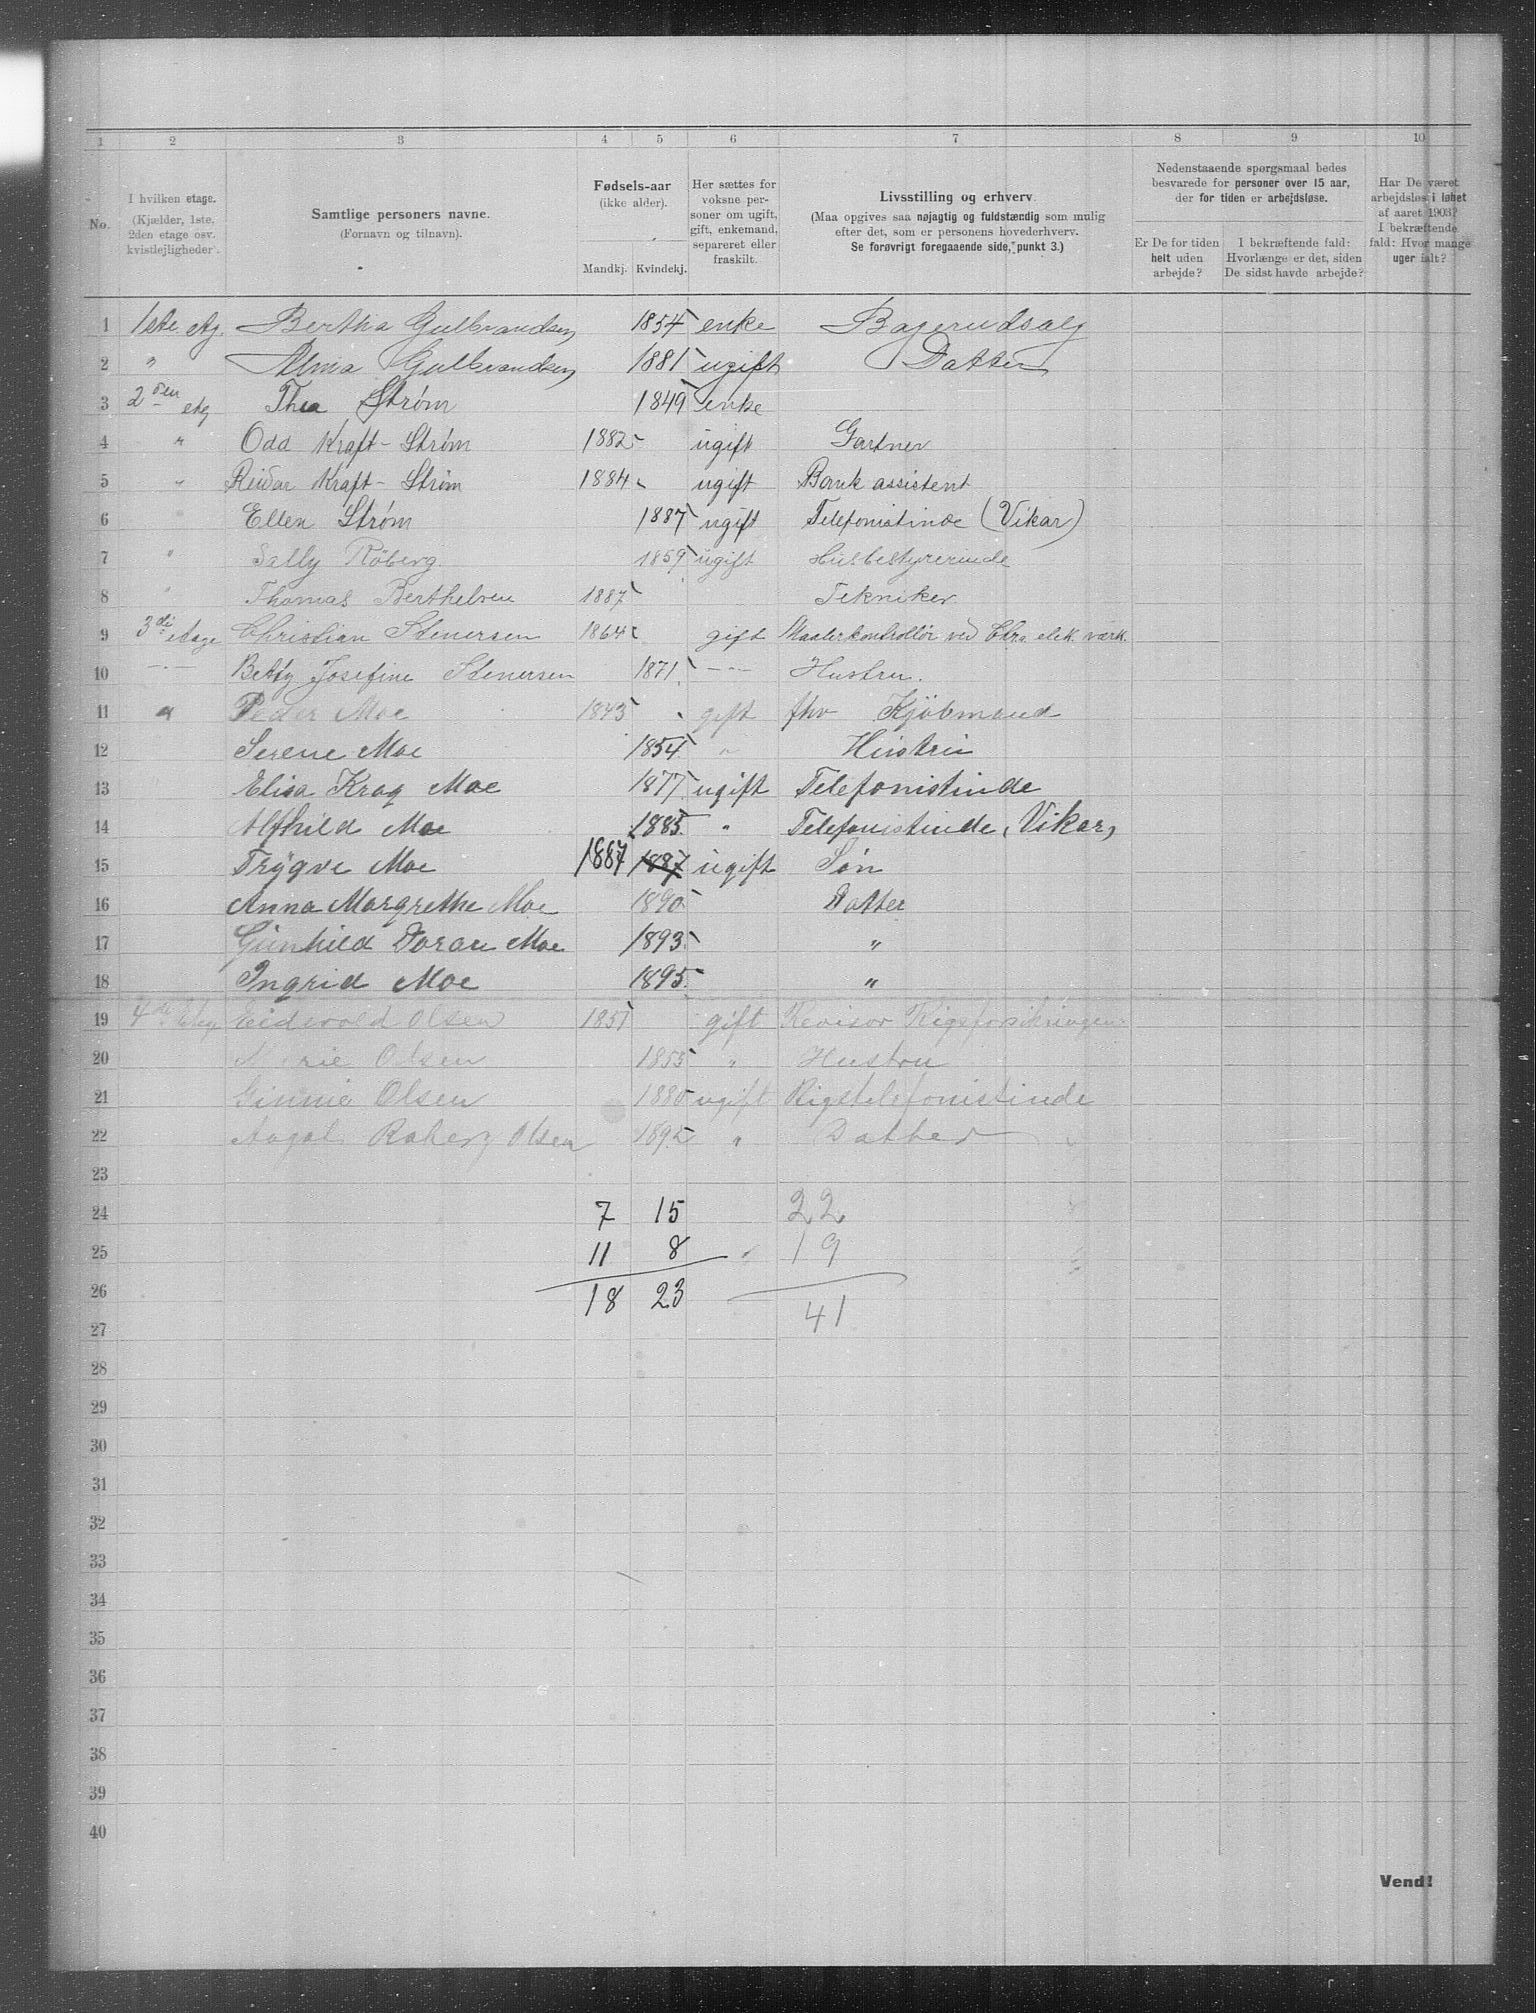 1 2 3 4 5 6 7 8 9 10
No.
I hvilken etage.
(Kjælder, 1ste,
2den etage osv.
kvistlejligheder).
Samtlige personers navne.
(Fornavn og tilnavn).
Fødsels-aar
(ikke alder).
Mandkj. Kvindekj.
Her sættes for
voksne per-
soner om ugift,
gift, enkemand,
separeret eller
fraskilt.
Livsstilling og erhverv.
(Maa opgives saa nøjagtig og fuldstændig som mulig
efter det, som er personens hovederhverv.
Se forøvrigt foregaaende side, punkt 3.)
Nedenstaaende spørgsmaal bedes
besvarede for personer over 15 aar,
der for tiden er arbejdsløse.
Er De for tiden
helt uden
arbejde?
I bekræftende fald:
Hvorlænge er det, siden
De sidst havde arbejde?
Har De været
arbejdsløs i løbet
af aaret 1903?
I bekræftende
fald: Hvor mange
uger ialt?
1 1ste etg. Bertha Gulbrandsen 1854 enke Bagerudsalg
2 " Alma Gulbrandsen 1881 ugift Datter
3 2den etg Thea Strøm 1849 enke
4 " Odd Kraft-Strøm 1882 ugift Gartner
5 " Reidar Kraft-Strøm 1884 ugift Bankassistent
6 " Ellen Strøm 1887 ugift Telefonistinde (Vikar)
7 " Sally Röberg. 1859 ugift Husbestyrerinde
8 " Thomas Berthelsen 1887 Tekniker
9 3di Etage Christian Stenersen 1864 gift Maalerkontrollør ved Chra elek. værk.
10 —"— Betsy Josefine Stenersen 1871 —"— Hustru.
11 " Peder Moe 1843 gift fhv Kjøbmand
12 Serene Moe 1854 " Hustru
13 Elisa Krag Moe 1877 ugift Telefonistinde
14 Alfhild Moe 1885 " Telefonistinde (Vikar)
15 Trygve Moe 1887 1887 ugift Søn
16 Anna Margrethe Moe 1890 Datter
17 Gunhild Moe 1893 "
18 Ingrid Moe 1895 "
19 4de Etage Eidsvold Olsen 1851 gift Revisor Rigsforsikringen
20 Marie Olsen 1855 " Hustru
21 Ginnie Olsen 1880 ugift Rigstelefonistinde
22 Olsen 1892 " Datter
23
24 7 15 22
25 11 8 19
26 18 23
27 41
28
29
30
31
32
33
34
35
36
37
38
39
40
Vend!